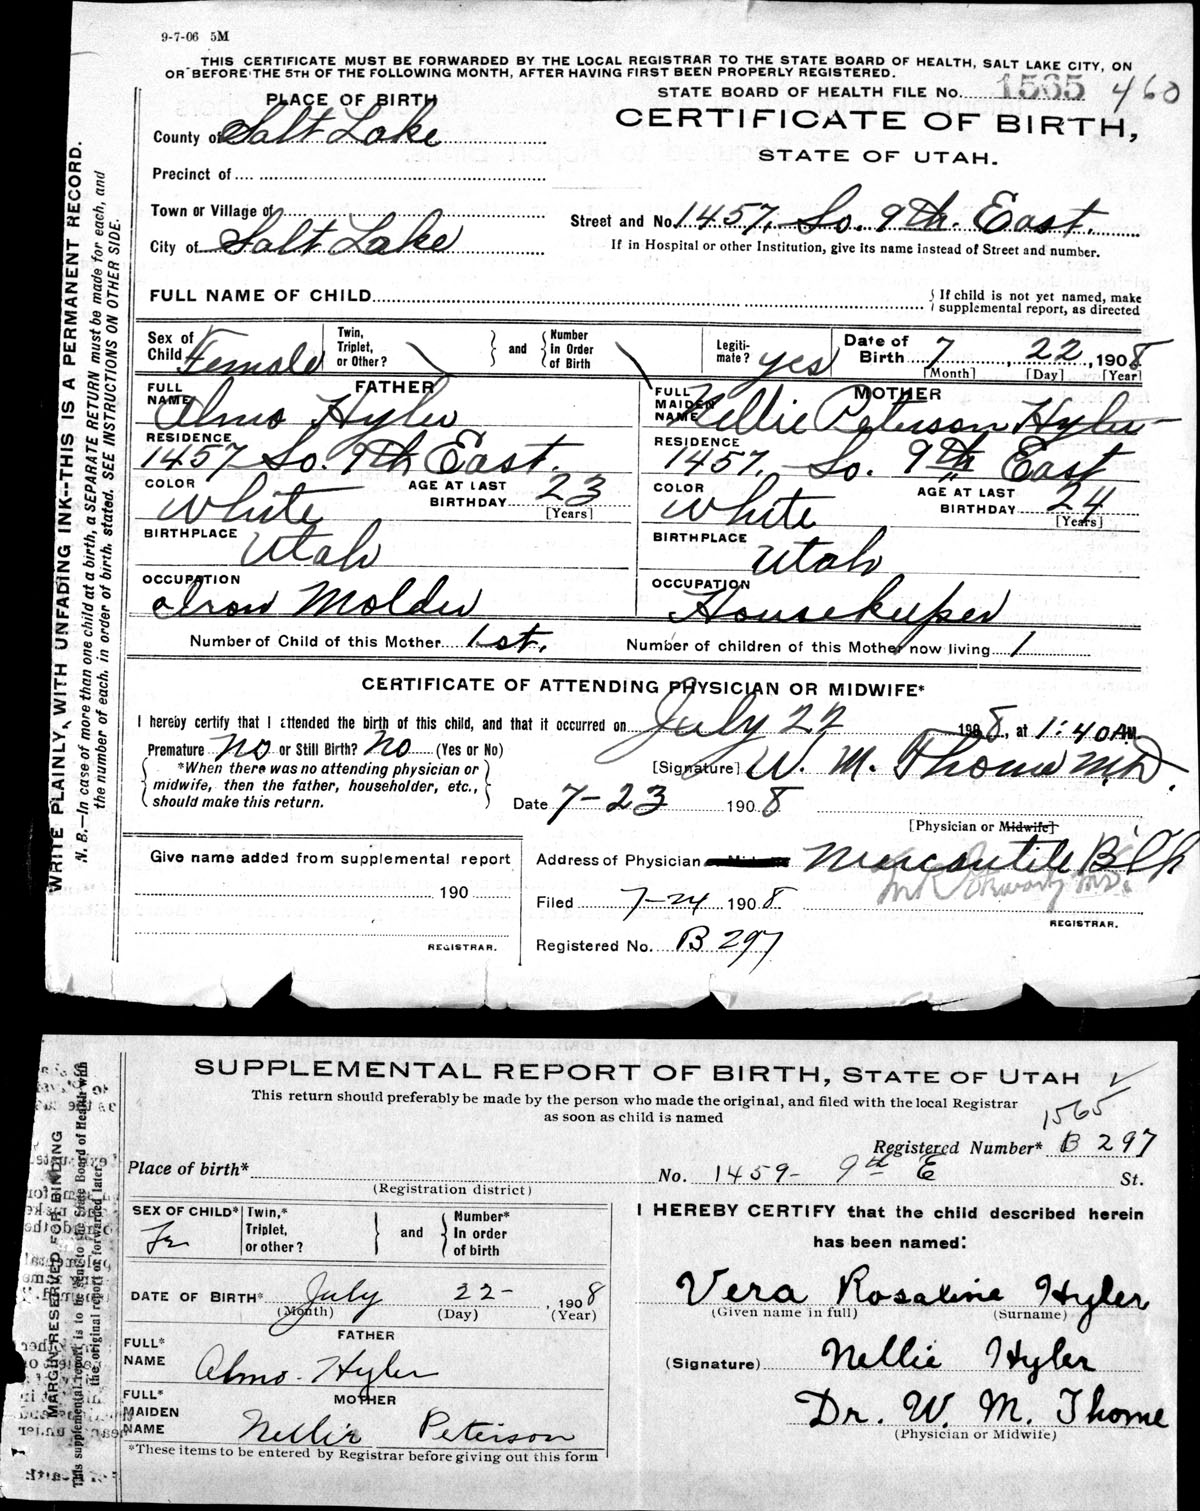 9-7-06 5M
THIS CERTIFICATE MUST BE FORWARDED BY THE LOCAL REGISTRAR TO THE STATE BOARD OF HEALTH, SALT LAKE CITY, ON
OR BEFORE THE 5TH OF THE FOLLOWING MONTH, AFTER HAVING FIRST BEEN PROPERLY REGISTERED.
STATE BOARD OF HEALTH FILE No. 1565 460
PLACE OF BIRTH
CERTIFICATE OF BIRTH,
STATE OF UTAH.
County of Salt Lake
Precinct of
Town or Village of
City of Salt Lake
Street and No. 1457 So. 9th. East.
If in Hospital or other Institution, give its name instead of Street and number.
FULL NAME OF CHILD
If child is not yet named, make
supplemental report, as directed
Sex of Child Female
Twin, Triplet, or Other?
and
Number In Order of Birth
Legiti-mate? yes
Date of Birth 7, 22, 1908
[Month] [Day] [Year]
FATHER
FULL NAME Almo Hyler
RESIDENCE
1457 So. 9th East.
COLOR White
AGE AT LAST BIRTHDAY 23
[Years]
BIRTHPLACE Utah
OCCUPATION
Iron Molder
MOTHER
FULL MAIDEN NAME Nellie Peterson Hyler
RESIDENCE
1457. So. 9th East
COLOR White
AGE AT LAST BIRTHDAY 24
[Years]
BIRTHPLACE Utah
OCCUPATION
Housekeeper
Number of Child of this Mother 1st.
Number of children of this Mother now living 1
CERTIFICATE OF ATTENDING PHYSICIAN OR MIDWIFE*
I hereby certify that I attended the birth of this child, and that it occurred on July 22 1908, at 1:40 A.M.
Premature no or Still Birth? no (Yes or No)
*When there was no attending physician or
midwife, then the father, householder, etc.,
should make this return.
[Signature] W. M. Thome M.D.
Date 7-23 1908
[Physician or Midwife]
Give name added from supplemental report
190
REGISTRAR.
Address of Physician Mercantile B'lk
Filed 7-24 1908
REGISTRAR.
Registered No. B 297
WRITE PLAINLY, WITH UNFADING INK--THIS IS A PERMANENT RECORD.
N. B.—In case of more than one child at a birth, a SEPARATE RETURN must be made for each, and
the number of each, in order of birth, stated. SEE INSTRUCTIONS ON OTHER SIDE.
SUPPLEMENTAL REPORT OF BIRTH, STATE OF UTAH
This return should preferably be made by the person who made the original, and filed with the local Registrar
as soon as child is named
1565
Registered Number* B 297
Place of birth*
No. 1459- 9th E St.
(Registration district)
SEX OF CHILD* Fe
Twin,* Triplet, or other?
and
Number* In order of birth
DATE OF BIRTH* July 22- 1908
(Month) (Day) (Year)
FATHER
FULL* NAME Almo. Hyler
MOTHER
FULL* MAIDEN NAME Nellie Peterson
*These items to be entered by Registrar before giving out this form
I HEREBY CERTIFY that the child described herein
has been named:
Vera Rosaline Hyler
(Given name in full) (Surname)
(Signature) Nellie Hyler
Dr. W. M. Thome
(Physician or Midwife)
MARGIN RESERVED FOR BINDING
This supplemental report is to be sent to the State Board of Health with
the original report or forwarded later.